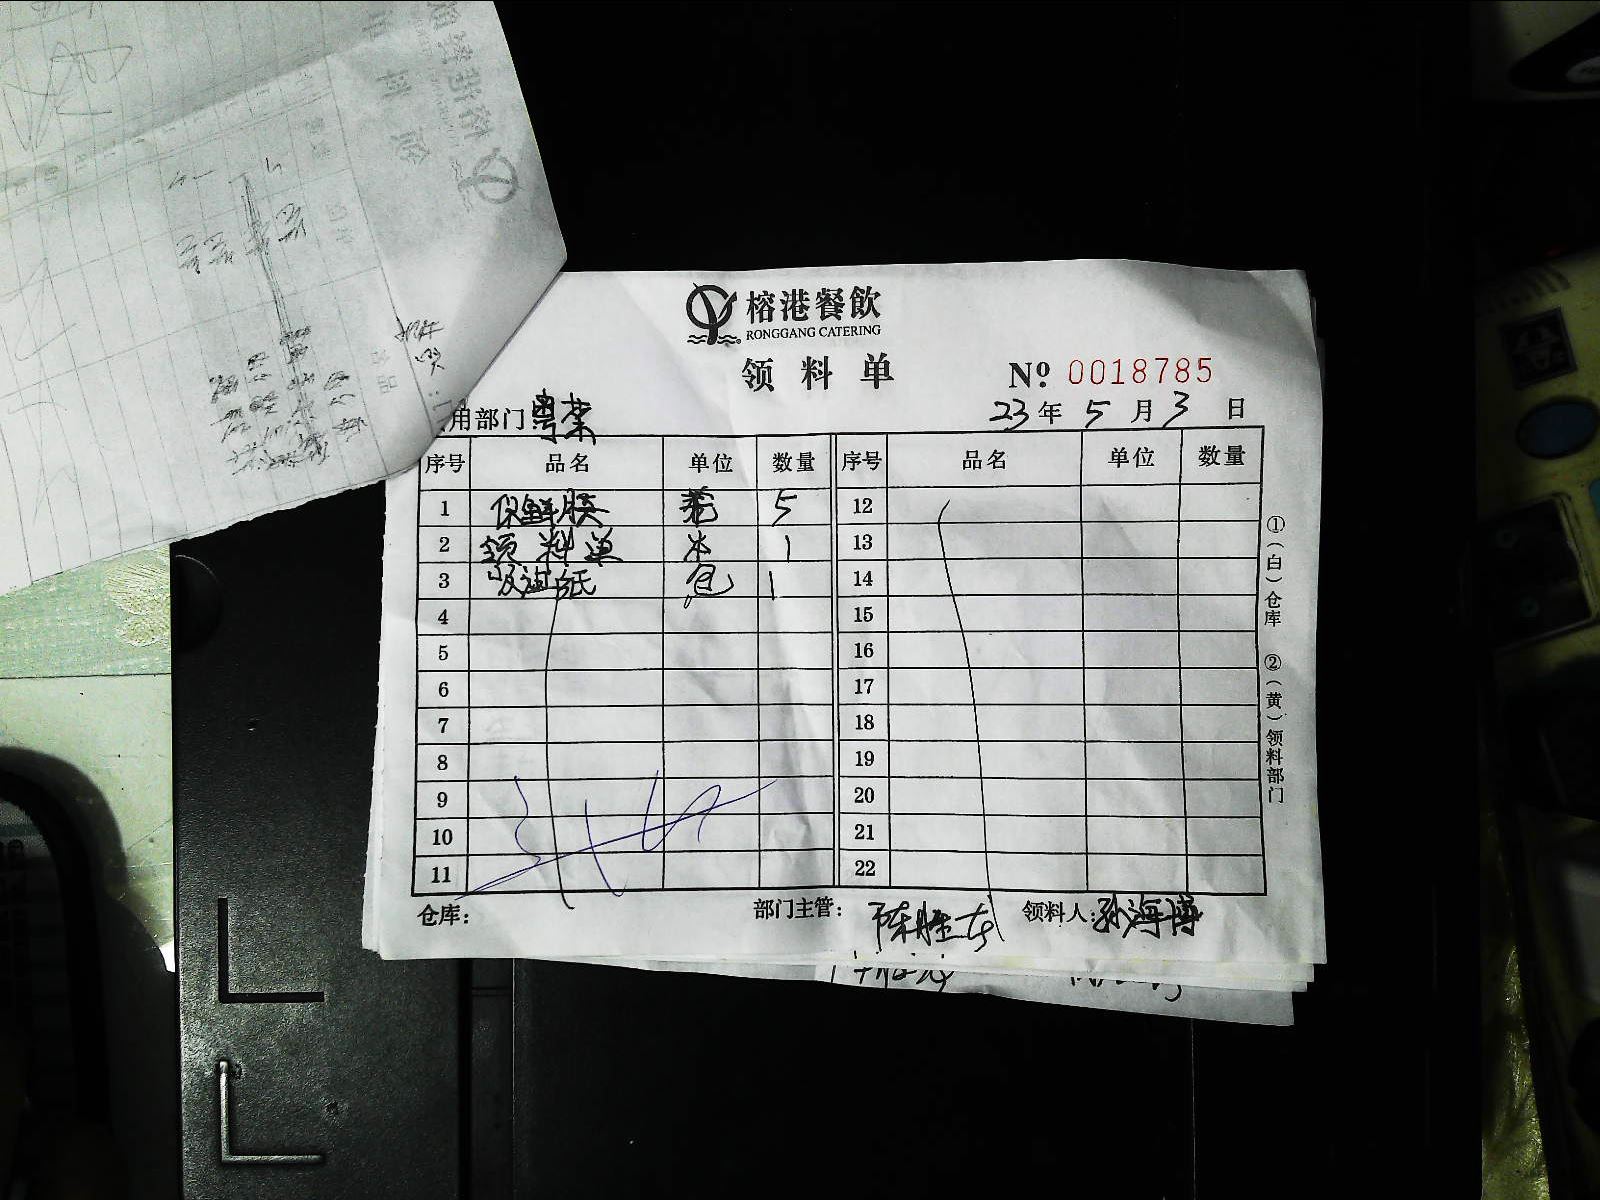 榕港餐飲
RONGGANG CATERING
领料单
№ 0018785
用部门 粤菜 23年5月3日
序号 品名 单位 数量 序号 品名 单位 数量
1 保鲜膜 卷 5 12
2 领料单 本 1 13
3 吸油纸 包 1 14
4 15
5 16
6 17
7 18
8 19
9 20
10 21
11 22
仓库： 部门主管：陈胜东 领料人：孙海博
①(白)仓库 ②(黄)领料部门